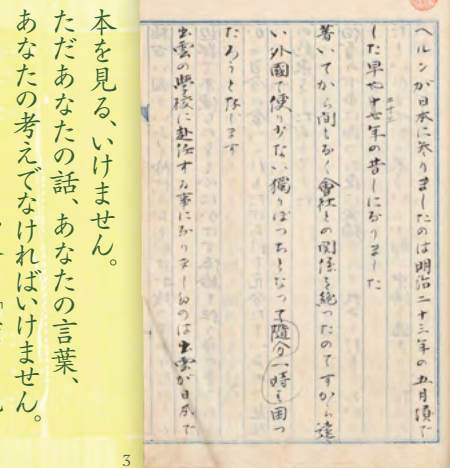 ヘルンが日本に参りましたのは明治二十三年の五月頃で
した早や十七年の昔しになりました
着いてから間もなく會社との関係を絶つたのですから遠
い外國で便り少ない獨りぼつちとなつて隨分一時は困つ
たろうと存じます
出雲の學校に赴任する事になりましたのは出雲が日本で
本を見る、いけません。
ただあなたの話、あなたの言葉、
あなたの考えでなければいけません。
3